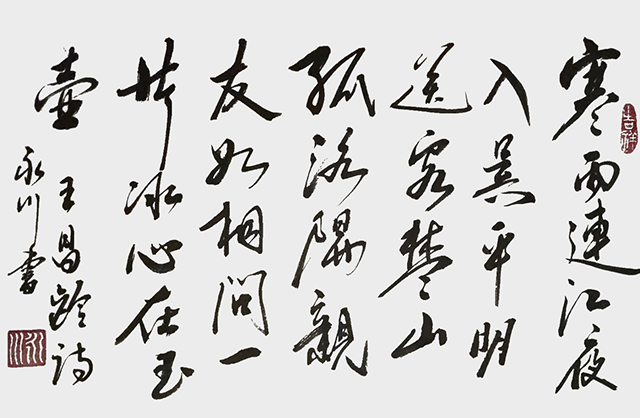 吉祥
寒雨連江夜
入吴平明
送客楚山
孤洛陽親
友如相問一
片冰心在玉
壺
王昌齡诗
永川書